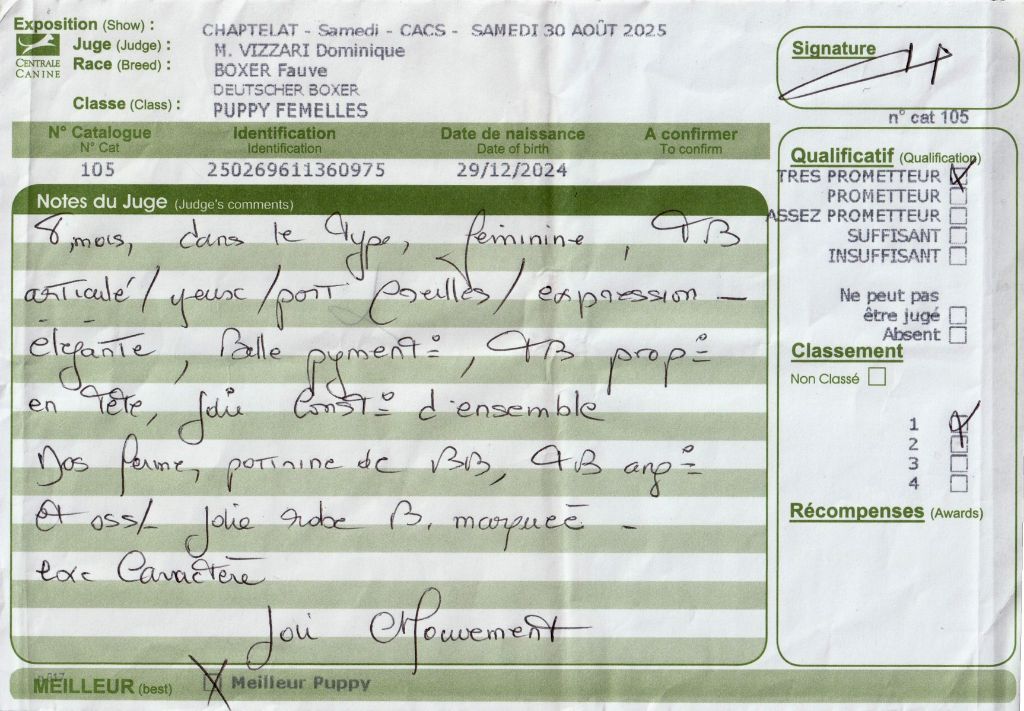 Exposition (Show) : CHAPTELAT - Samedi - CACS - SAMEDI 30 AOÛT 2025
CENTRALE CANINE
Juge (Judge) : M. VIZZARI Dominique
Race (Breed) : BOXER Fauve
DEUTSCHER BOXER
Classe (Class) : PUPPY FEMELLES
Signature
n° cat 105
N° Catalogue Identification Date de naissance A confirmer
N° Cat Identification Date of birth To confirm
105 250269611360975 29/12/2024
Notes du Juge (Judge's comments)
8 mois, dans le type, féminine, TB
articulé / yeux / port oreilles / expression -
élégante, Belle pigment°, TB prop°
en tête, jolie Const° d'ensemble
Dos ferme, poitrine de BB, TB ang°
et oss/ Jolie robe B. marqueé -
exc Caractère
Joli Mouvement
Qualificatif (Qualification)
TRES PROMETTEUR
PROMETTEUR
ASSEZ PROMETTEUR
SUFFISANT
INSUFFISANT
Ne peut pas
être jugé
Absent
Classement
Non Classé
1
2
3
4
Récompenses (Awards)
MEILLEUR (best) Meilleur Puppy